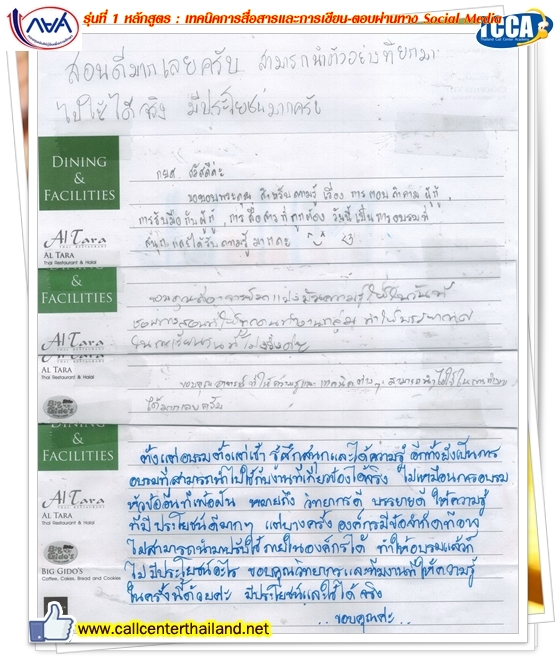 กยศ.
รุ่นที่ 1 หลักสูตร : เทคนิคการสื่อสารและการเขียน-ตอบผ่านทาง Social Media
TCCA
สอนดีมากเลยครับ สามารถนำตัวอย่างที่ยกมา
ไปใช้ได้จริง มีประโยชน์มากครับ
DINING
&
FACILITIES
Al Tara
AL TARA
Thai Restaurant & Halal
กยศ. สวัสดีค่ะ
ขอขอบพระคุณ สำหรับความรู้ เรื่อง การตอบคำถามผู้กู้,
การรับมือกับผู้กู้, การสื่อสารที่ถูกต้อง วันนี้เป็นการอบรมที่
สนุก และได้รับความรู้มากค่ะ
&
FACILITIES
Al Tara
AL TARA
Thai Restaurant & Halal
AL TARA
Thai Restaurant & Halal
Big Gido's
ขอบคุณอาจารย์ ที่ให้ความรู้และเทคนิคต่างๆ สามารถนำไปใช้ใน
ได้มากเลยครับ
DINING
&
FACILITIES
Al Tara
AL TARA
Thai Restaurant & Halal
Big Gido's
BIG GIDO'S
Coffee, Cakes, Bread and Cookies
ตั้งแต่อบรมตั้งแต่เช้า รู้สึกสนุกและได้ความรู้ อีกทั้งยังเป็นการ
อบรมที่สามารถนำไปใช้กับงานที่เกี่ยวข้องได้จริง ไม่เหมือนการอบรม
หัวข้ออื่นที่เพ้อฝัน หมายถึง วิทยากรดี บรรยายดี ให้ความรู้
ที่มีประโยชน์ดีมากๆ แต่บางครั้ง องค์กรมีข้อจำกัดที่อาจ
ไม่สามารถนำมาปรับใช้ภายในองค์กรได้ ทำให้อบรมแล้วก็
ไม่มีประโยชน์อะไร ขอบคุณวิทยากรและทีมงานที่ให้ความรู้
ในครั้งนี้ด้วยค่ะ มีประโยชน์และใช้ได้จริง
..ขอบคุณค่ะ..
www.callcenterthailand.net